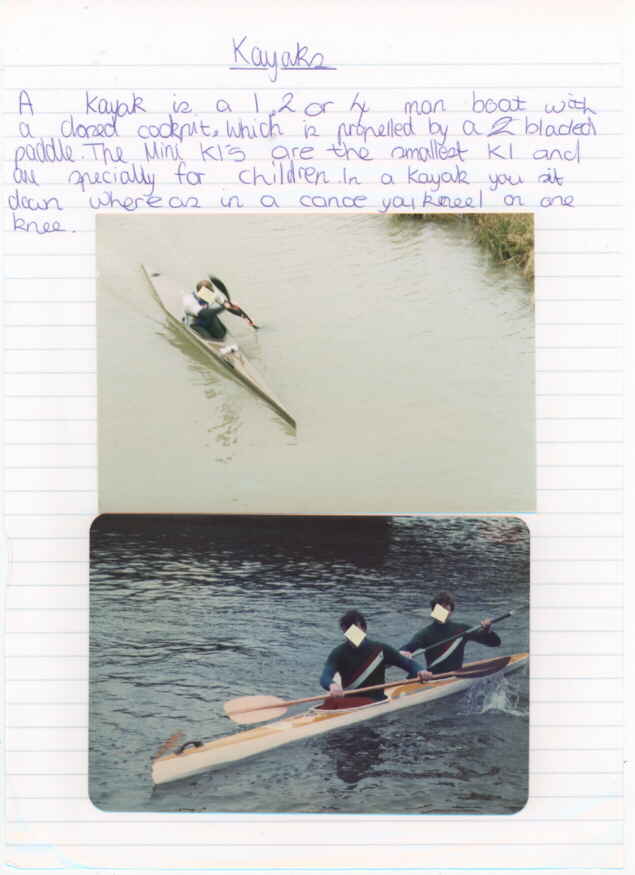 Kayaks
A Kayak is a 1, 2 or 4 man boat with
a closed cockpit, which is propelled by a 2 bladed
paddle. The Mini K1's are the smallest K1 and
are specially for children. In a Kayak you sit
down whereas in a canoe you kneel on one
knee.